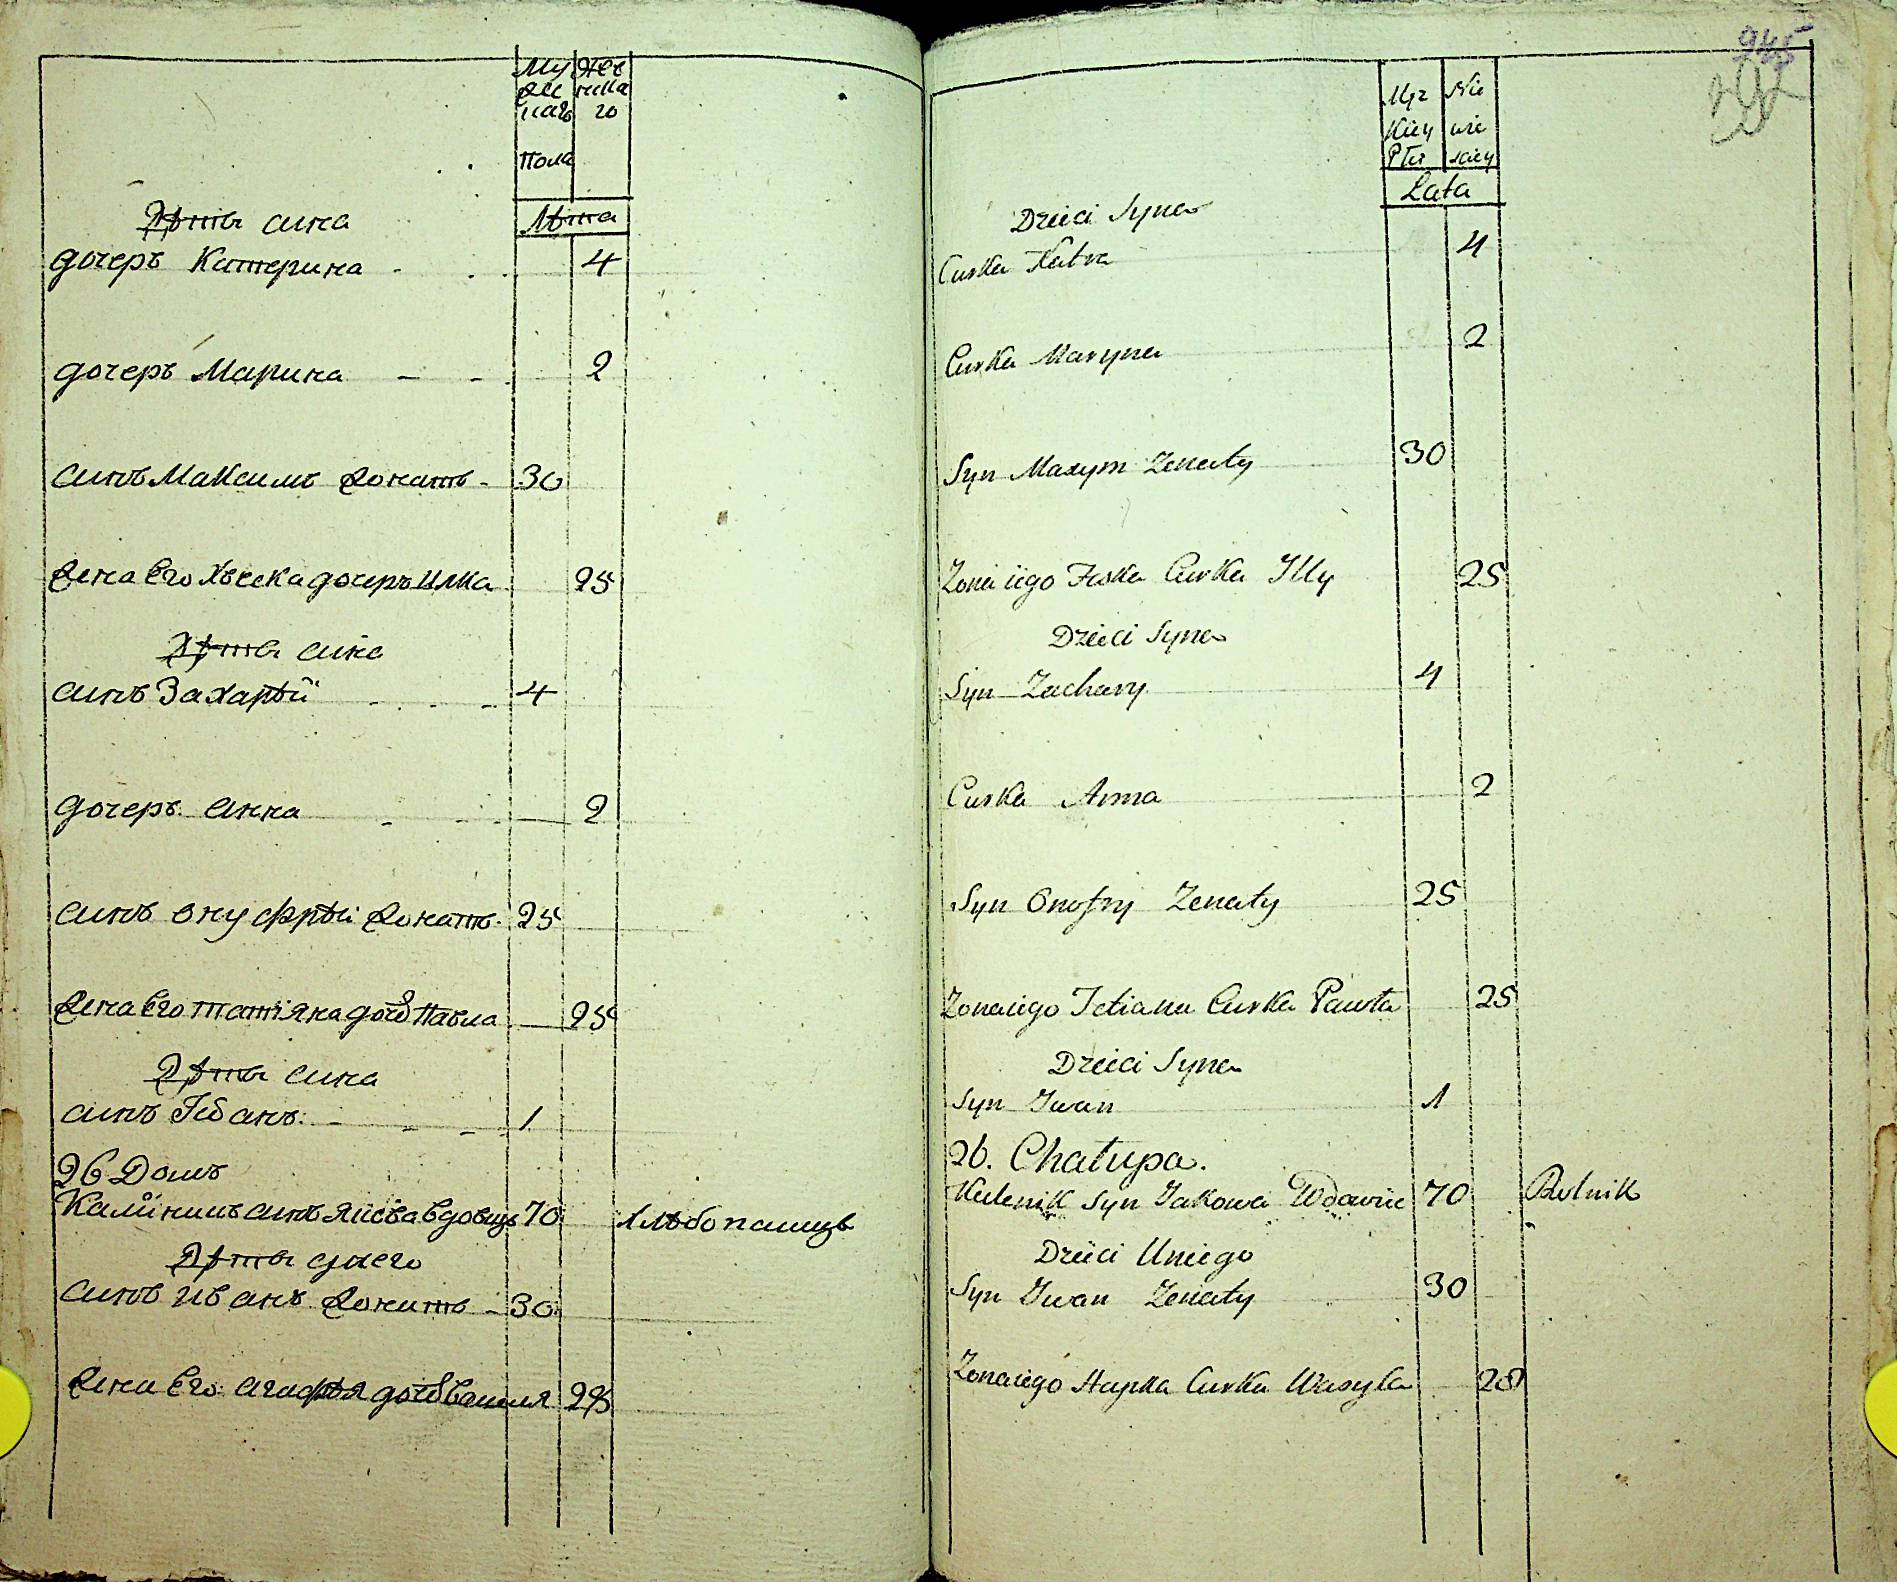 Му Жен
жес ска
каго го
Пола
Лѣта
Дѣты сина
дочеръ Катерина 4
дочеръ Марина 2
синъ Максимъ жонатъ 30
жена Его Хвеска дочеръ Илка 25
Дѣты сина
синъ Захарѣй 4
дочеръ Анна 2
синъ Онуфрѣй жонатъ 25
жена Его татіяна доч Павла 25
Дѣты сина
синъ Іванъ 1
26 Домъ
синъ вдовцъ 70 Хлѣбопашцъ
Дѣты у него
синъ Иванъ жонатъ 30
жена Его Агафѣя доч Василя 28
945
Męz Nie
Kiey wie
Płci sciey
Lata
Dzieci Syna
Curka Katra 4
Curka Maryna 2
Syn Maxym Zenaty 30
Zona iego Feska Curka Illy 25
Dzieci Syna
Syn Zachary 4
Curka Anna 2
Syn Onofry Zenaty 25
Zona iego Tetiana Curka Pawła 25
Dzieci Syna
Syn Iwan 1
26. Chałupa.
Kalenik Syn Jakowa Wdowiec 70 Rolnik
Dzieci Uniego
Syn Iwan Zenaty 30
Zona iego Hapka Curka Wasyla 28